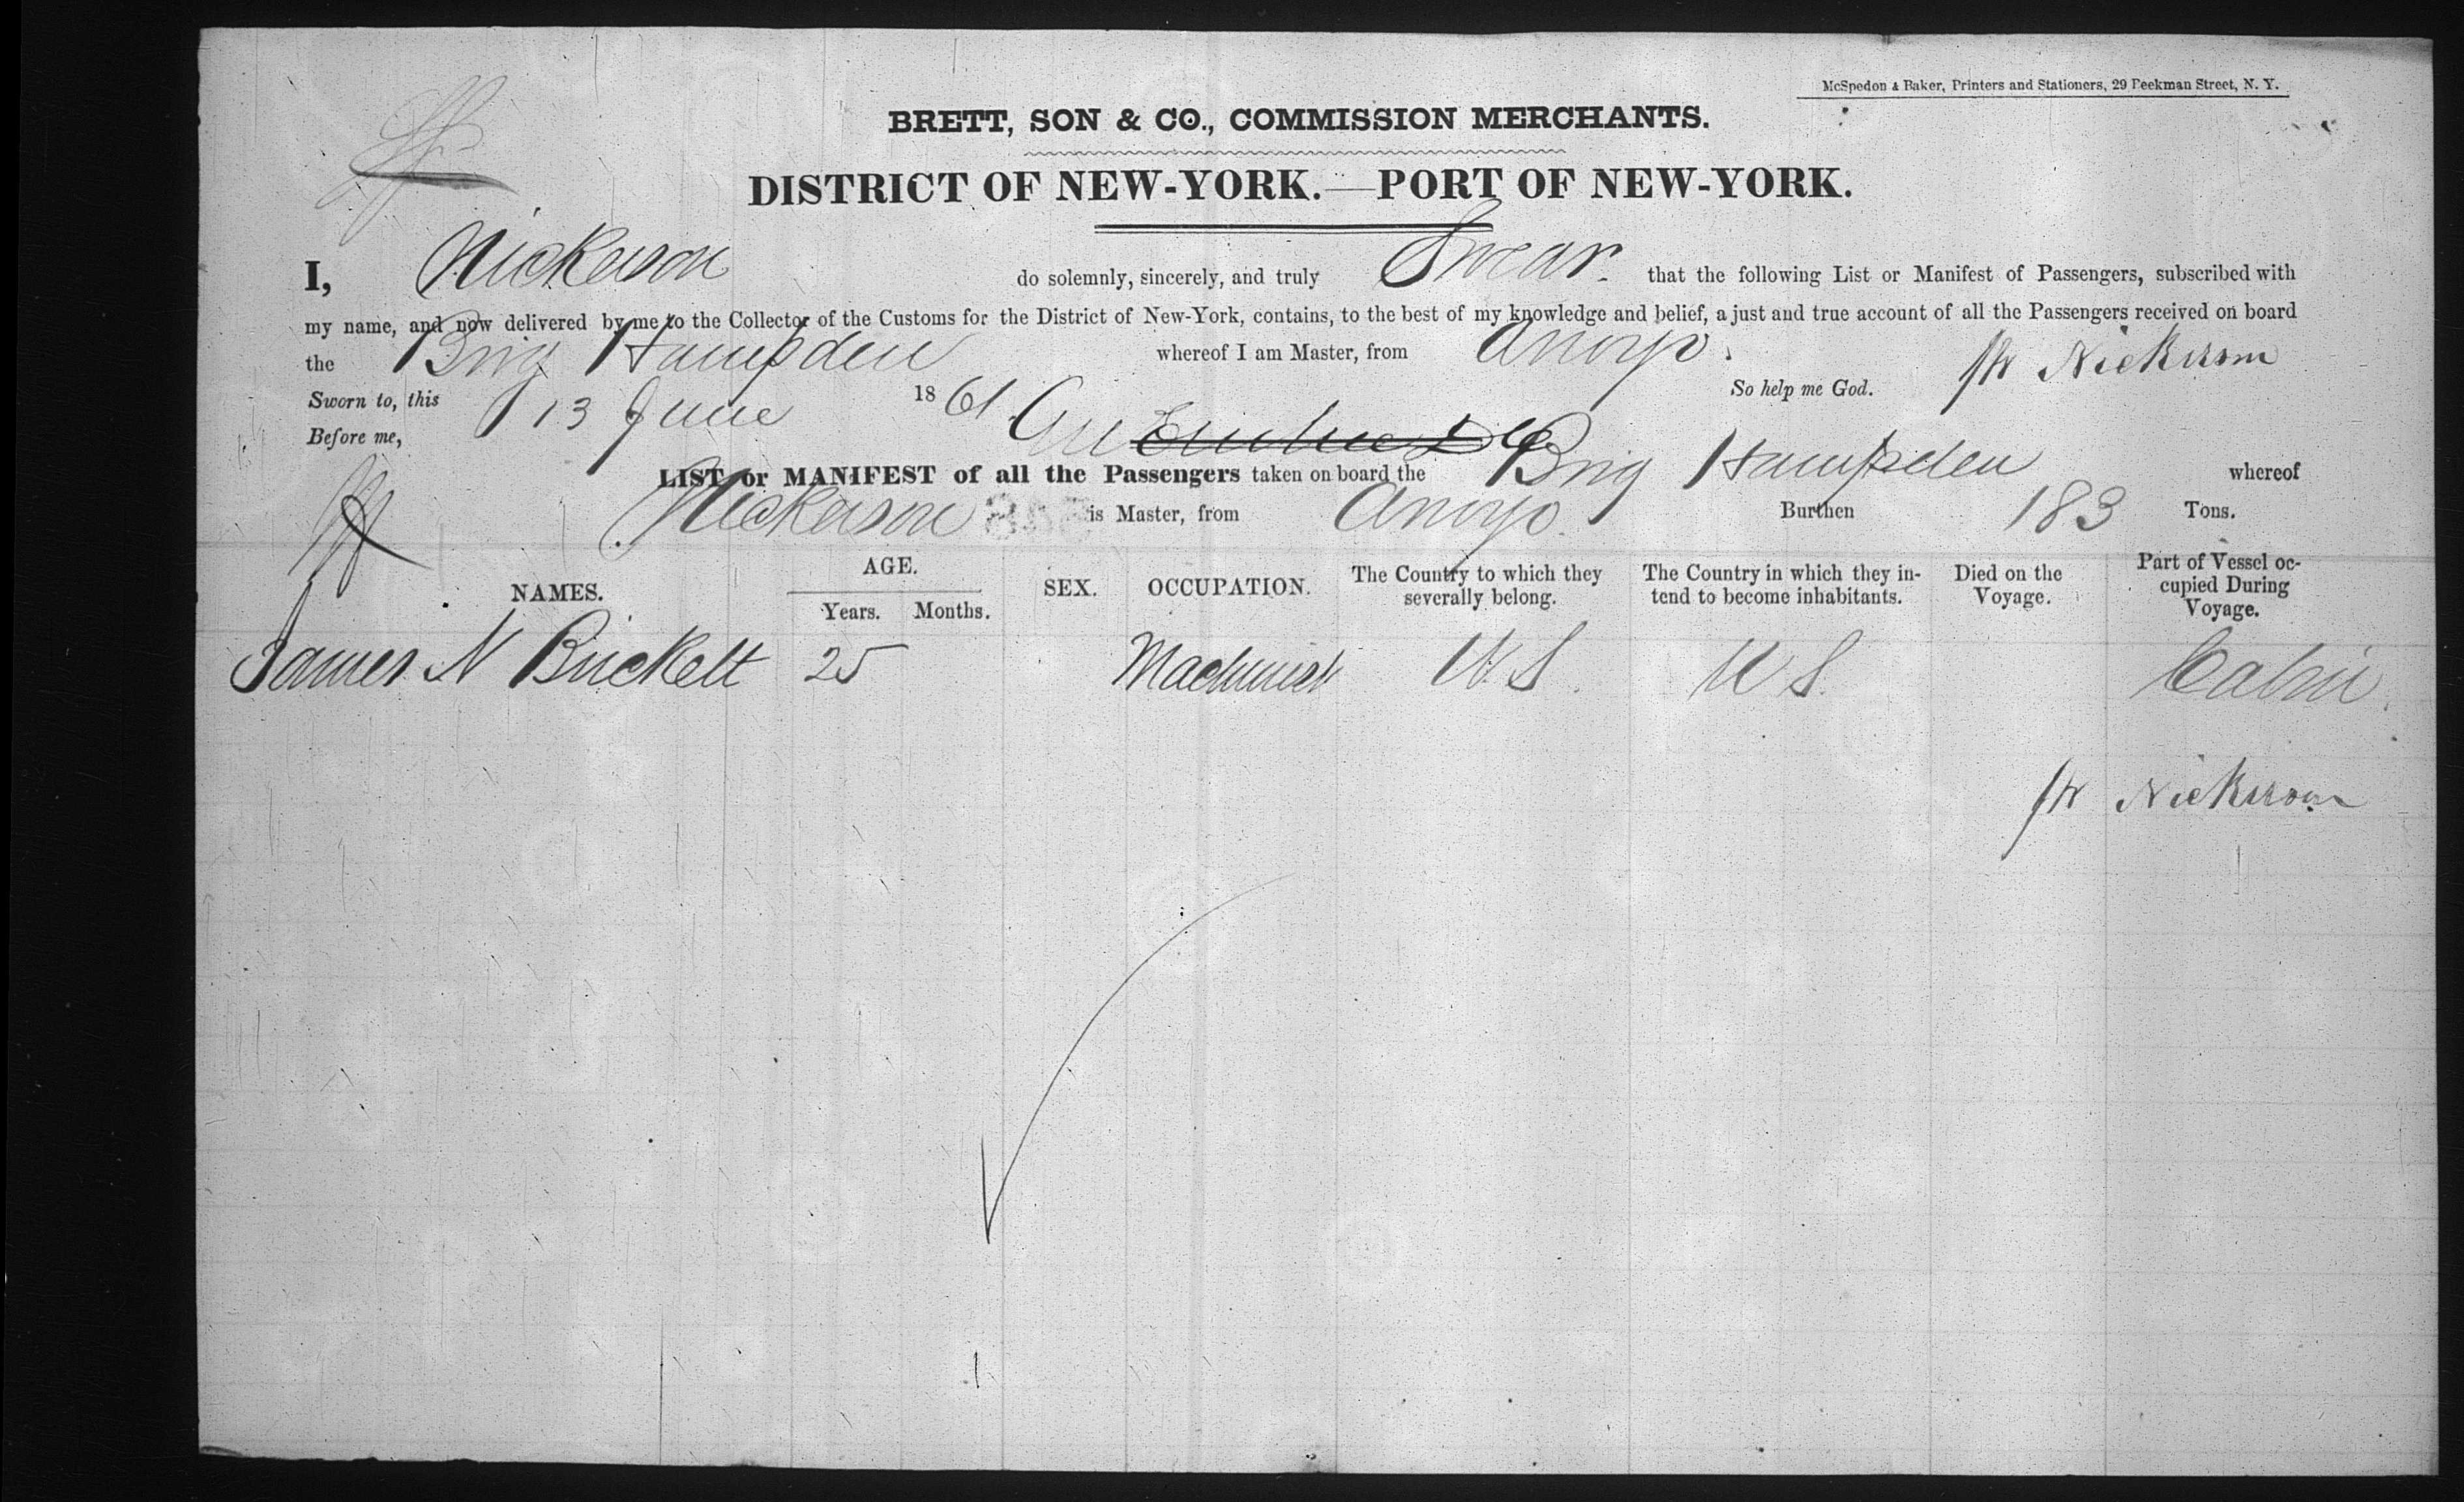 McSpedon & Baker, Printers and Stationers, 29 Beekman Street, N. Y.
BRETT, SON & CO., COMMISSION MERCHANTS.
DISTRICT OF NEW-YORK.—PORT OF NEW-YORK.
I, Nickerson do solemnly, sincerely, and truly Swear that the following List or Manifest of Passengers, subscribed with
my name, and now delivered by me to the Collector of the Customs for the District of New-York, contains, to the best of my knowledge and belief, a just and true account of all the Passengers received on board
the Brig Hampden whereof I am Master, from Arroyo.
So help me God. Nickerson
Sworn to, this 13 June 1861.
Before me,
LIST or MANIFEST of all the Passengers taken on board the Brig Hampden whereof
Nickerson is Master, from Arroyo. Burthen 183 Tons.
NAMES. AGE. Years. Months. SEX. OCCUPATION. The Country to which they severally belong. The Country in which they intend to become inhabitants. Died on the Voyage. Part of Vessel occupied During Voyage.
James N Brickett 25 Machinist U.S. U S. Cabin
Nickerson